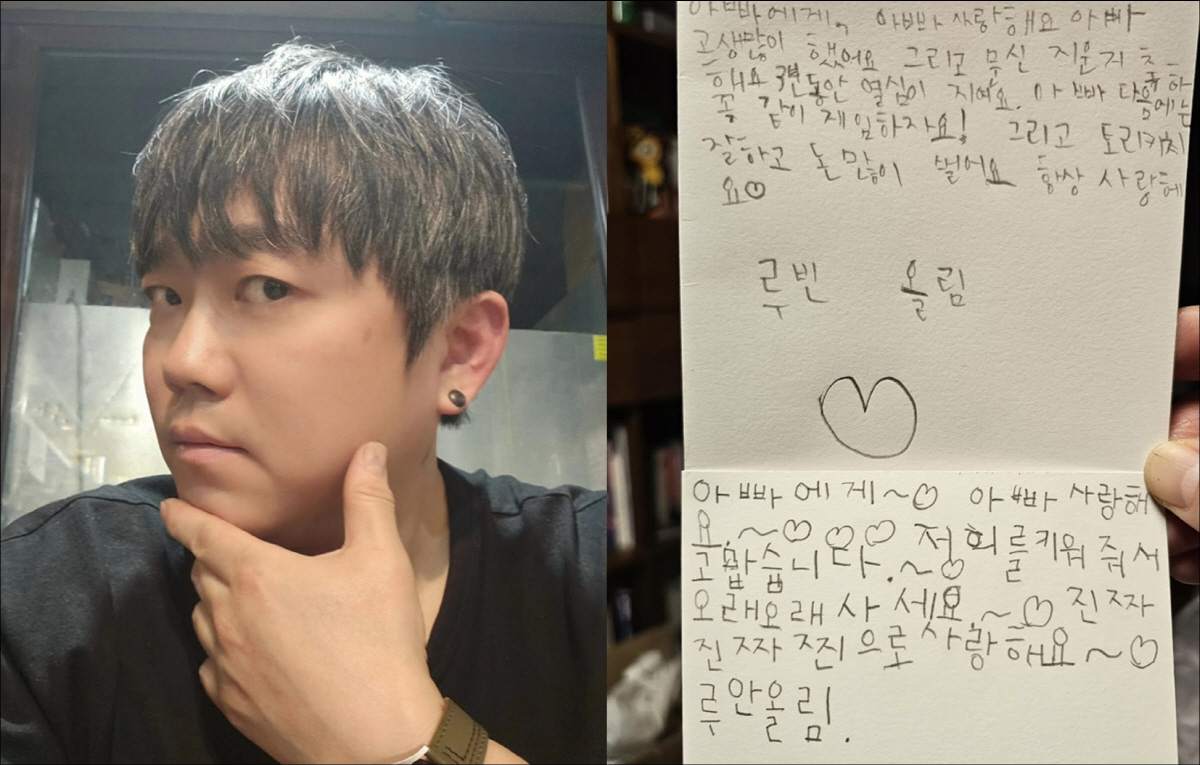 아빠에게, 아빠 사랑해요 아빠
고생많이 했어요 그리고 무신 지운지 축하
해요 3년동안 열심이 지여요. 아빠 다음에는
꼭 같이 게임하자요! 그리고 토리키치
잘하고 돈 많이 벌어요 항상 사랑해
요♡
루빈 올림
아빠에게~♡ 아빠 사랑해
요.~♡♡♡ 정희를키워 줘서
고맙습니다.~♡
오래오래 사세요.~♡ 진짜
진짜 찐으로 사랑해요~♡
루안올림.